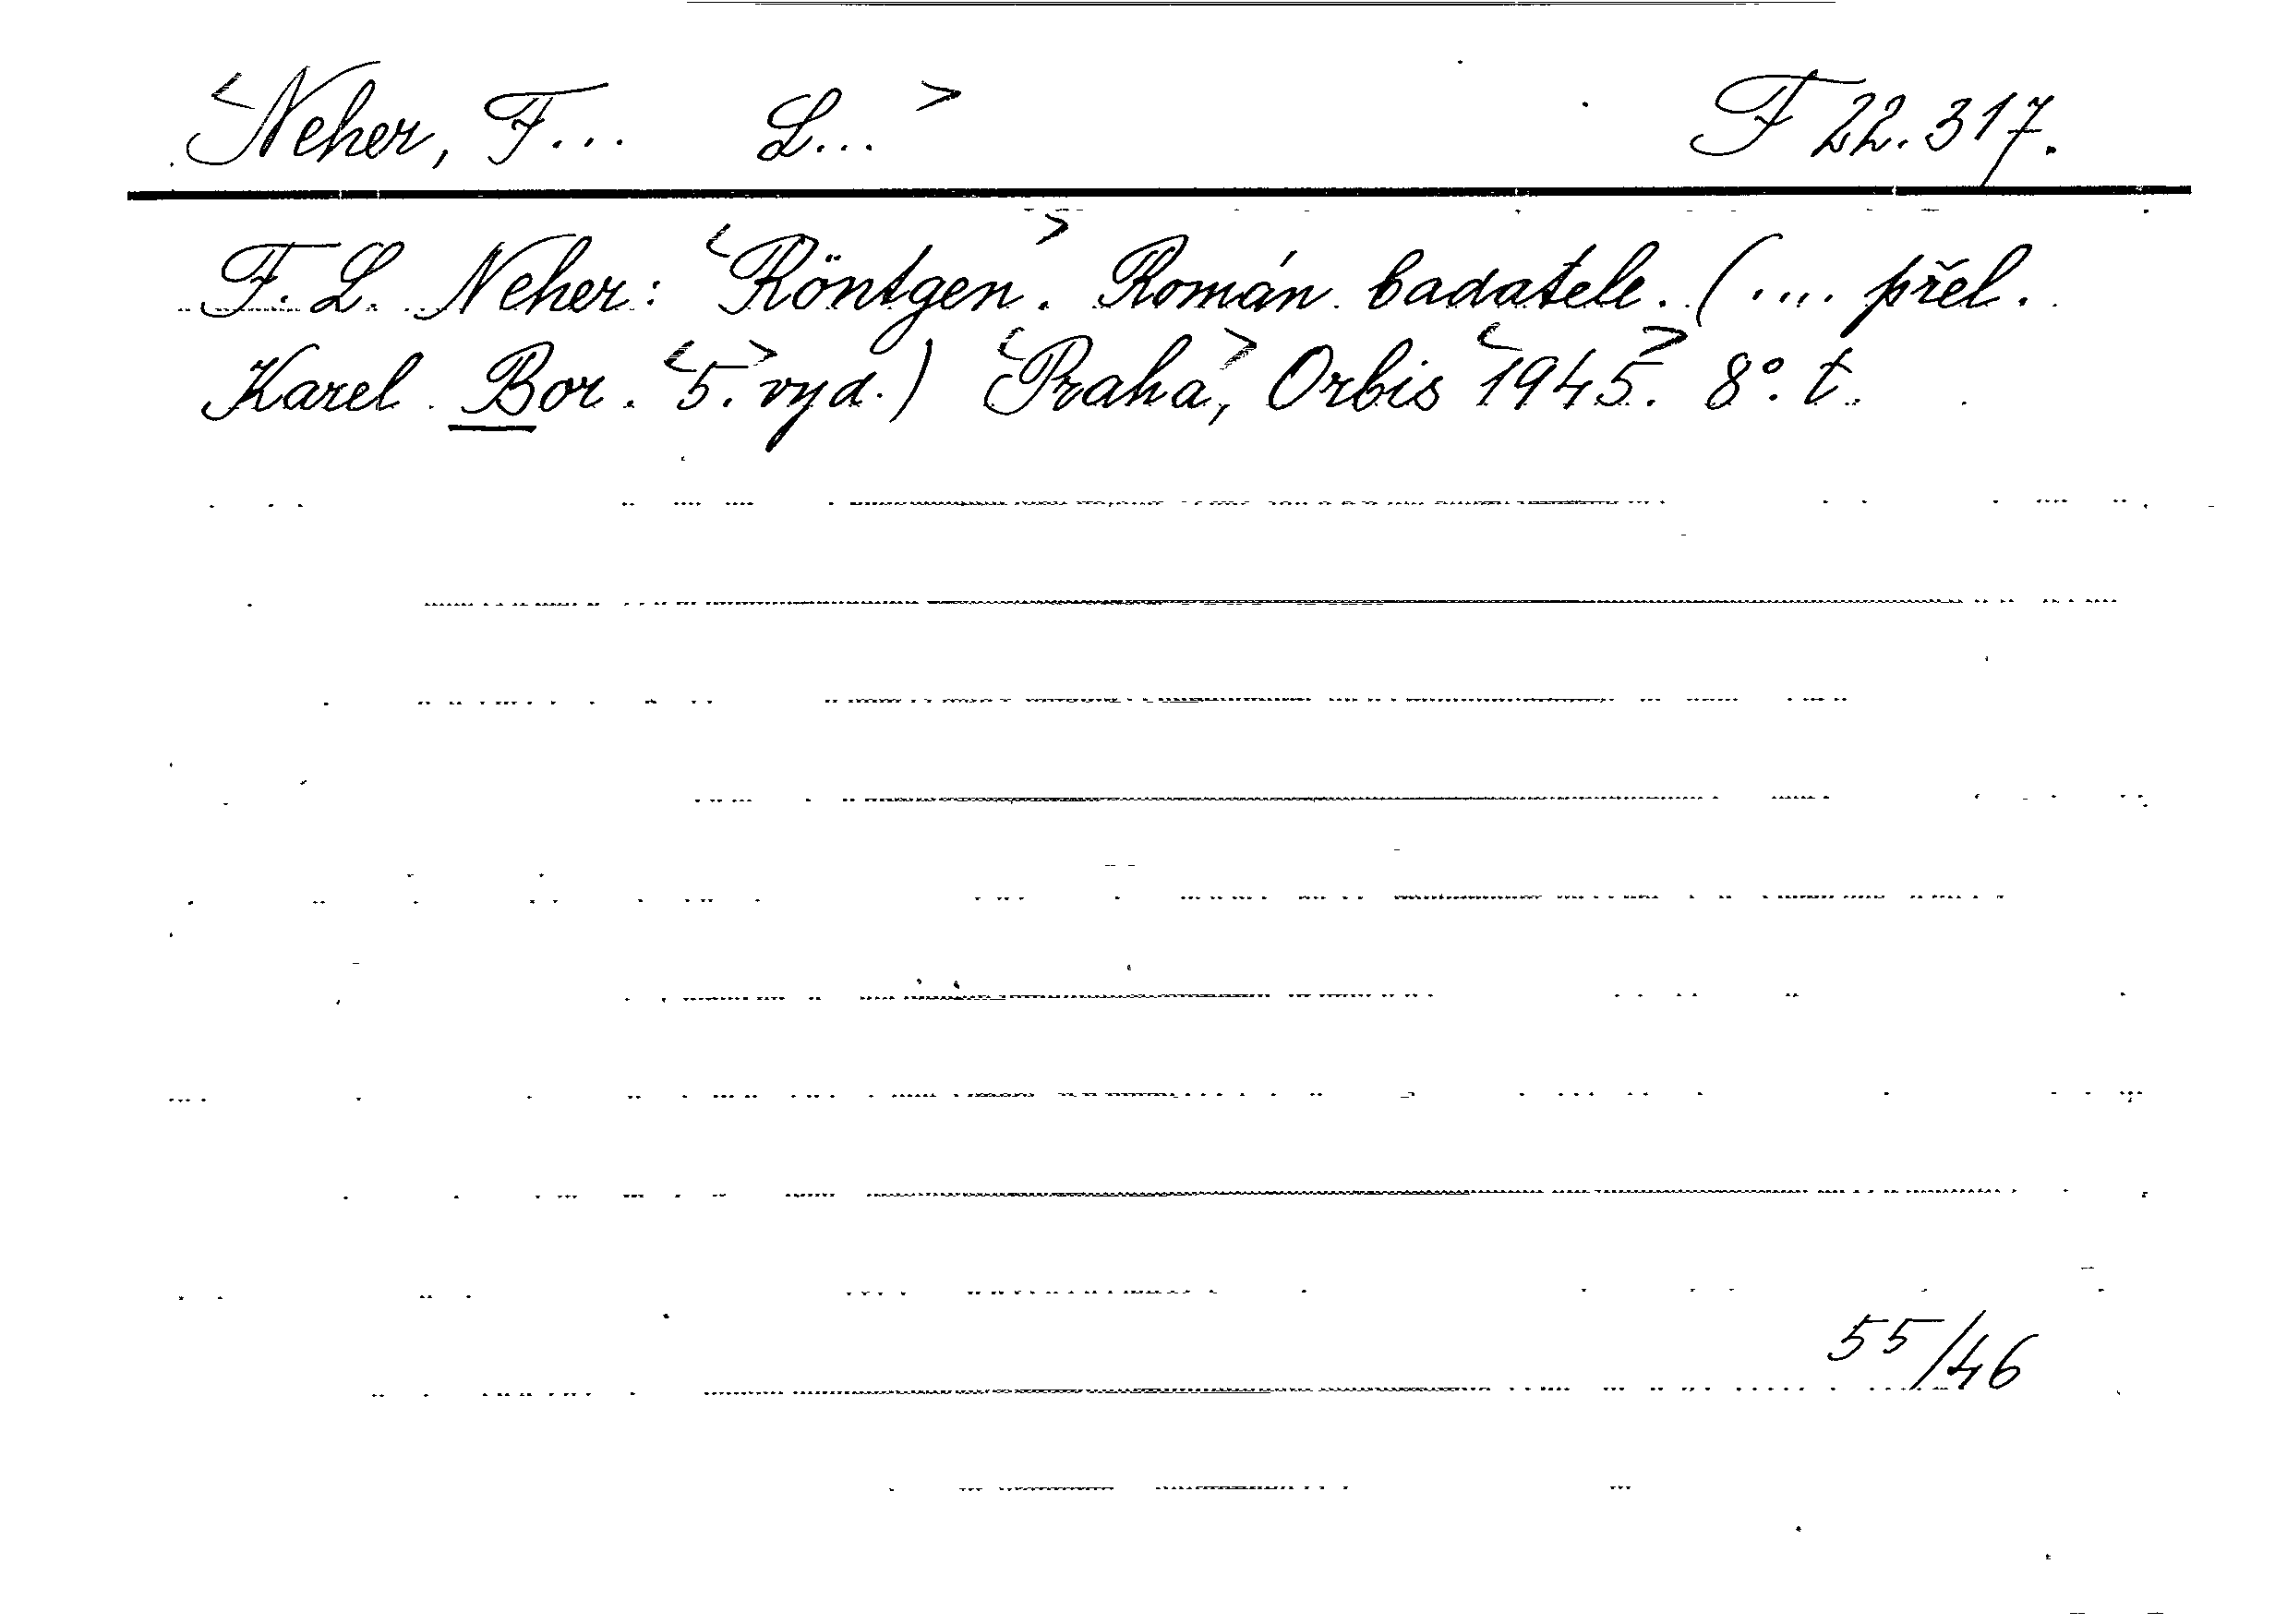 <Neher, F... L...> F 22.317.
F. L. Neher: <Röntgen>. Román badatele. (.... přel.
Karel Bor. <5.> vyd.) <Praha>, Orbis <1945>. 8°. t.
55/46